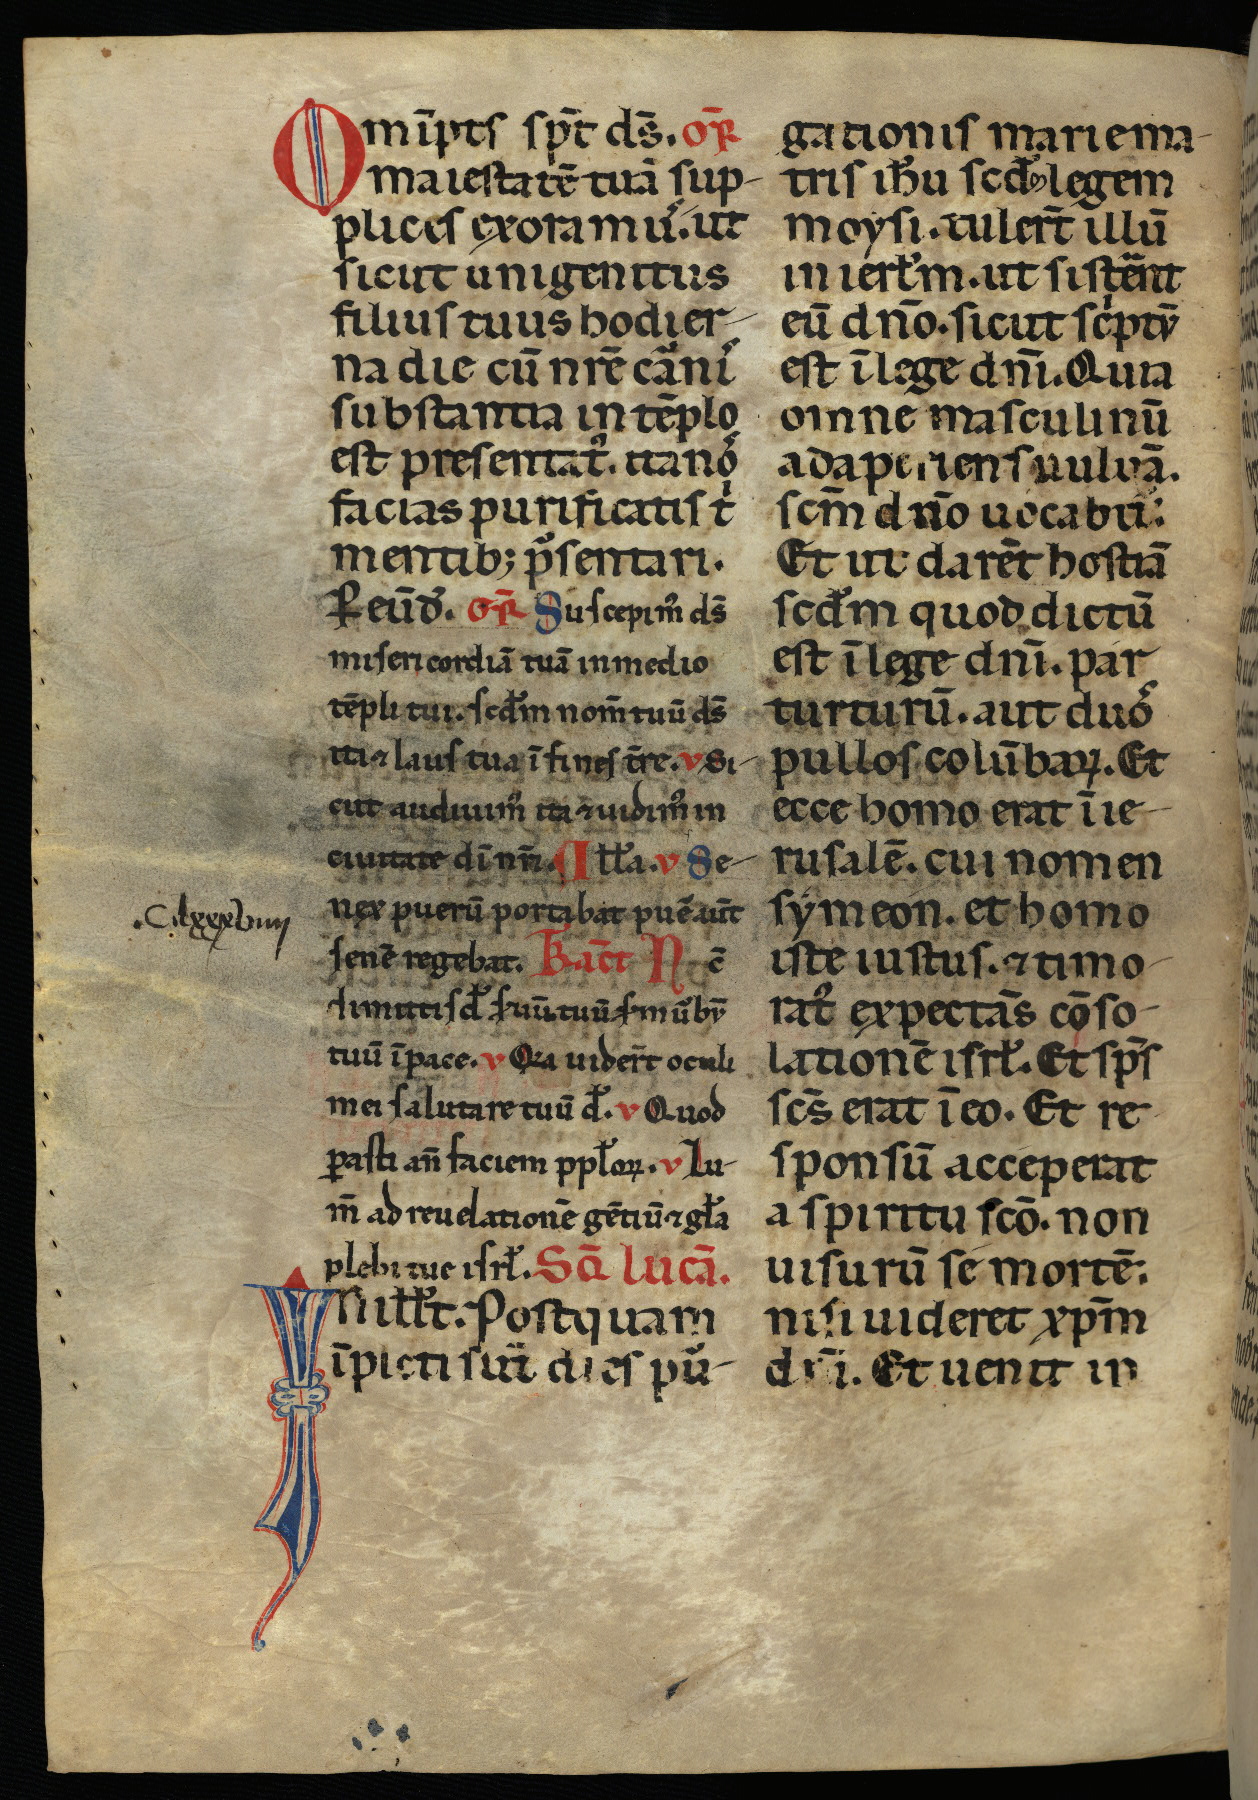 Omīpts sp̄t ds̄. oR̄
maiestatē tuā sup-
plices exoramꝰ. ut
sicut unigenitus
filius tuus hodier-
na die cū nr̄e carnis
substantia in tēplo
est presentatꝰ. ita nos
facias purificatis t
mentib; p̄sentari.
P eūd̄. oR̄ Suscepimꝰ ds̄
misericordiā tuā in medio
tēpli tui. scd̄m nom̄ tuū ds̄
ita ⁊ laus tua ī fines tr̄e. v Si-
cut audiuimꝰ ita ⁊ uidimꝰ in
ciuitate dī nr̄i. All̄a. v Se-
nex puerū portabat puē aūt
senē regebat. Tract N c̄
dimittis d̄ seruū tuū scd̄m ūbū
tuū ī pace. v Qia uider̄t oculi
mei salutare tuū d̄. v Quod
parasti an̄ faciem ppl̄oꝝ. v Lu-
m̄ ad reuelationē gētiū ⁊ gl̄a
plebi tue isrl̄. Scd̄ lucā.
.Clxxxviiij
In ill̄ t. Postquam
īpleti sūt dies pur-
gationis marie ma-
tris ih̄u scd̄m legem
moysi. tuler̄t illū
in ierl̄m. ut sisterent
eū dn̄o. sicut scptū
est ī lege dn̄i. Quia
omne masculinū
adaperiens uuluā.
scm̄ dn̄o uocabit̄.
Et ut darēt hostiā
scd̄m quod dictū
est ī lege dn̄i. par
turturū. aut duos
pullos colūbaꝝ. Et
ecce homo erat ī ie-
rusalē. cui nomen
symeon. et homo
iste iustus. ⁊ timo-
ratꝰ expectās cōso-
lationē isrl̄. Et sp̄s
scs̄ erat ī eo. Et re-
sponsū acceperat
a spiritu scō. non
uisurū se mortē.
nisi uideret xp̄m
dn̄i. Et uenit in